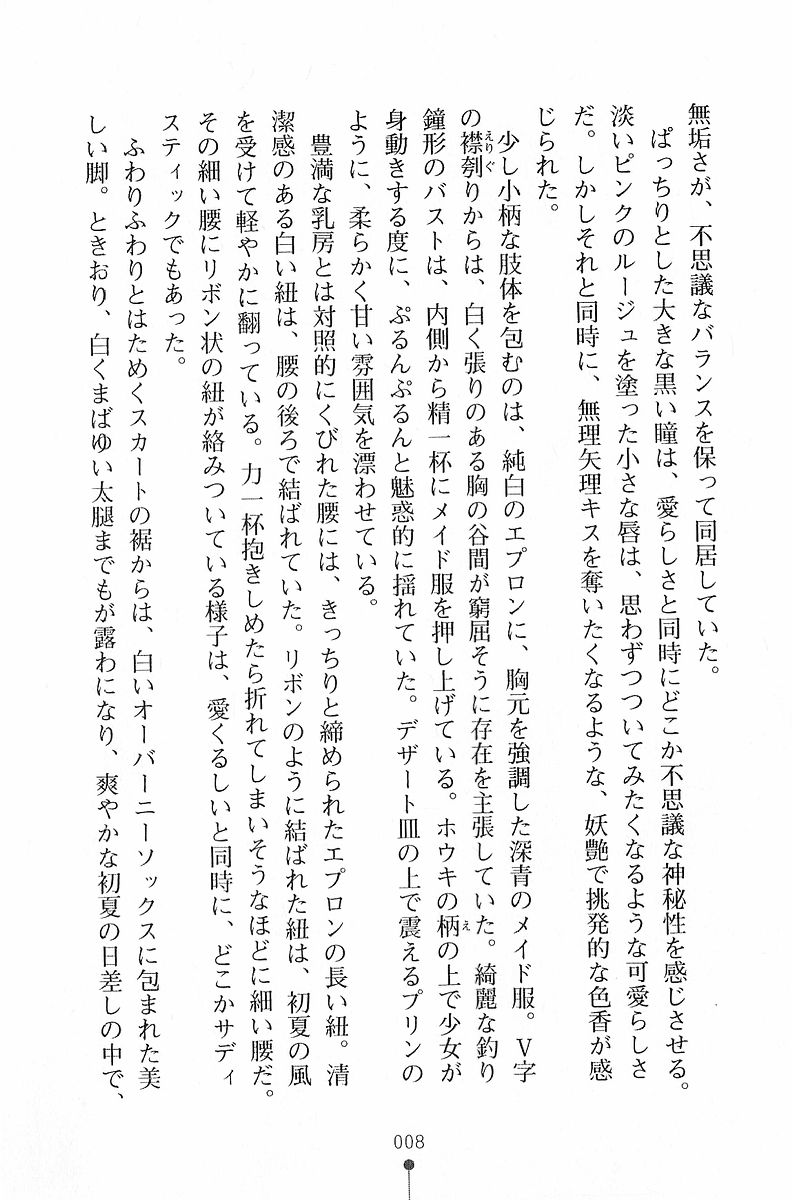 無垢さが、不思議なバランスを保って同居していた。
ぱっちりとした大きな黒い瞳は、愛らしさと同時にどこか不思議な神秘性を感じさせる。
淡いピンクのルージュを塗った小さな唇は、思わずつついてみたくなるような可愛らしさ
だ。しかしそれと同時に、無理矢理キスを奪いたくなるような、妖艶で挑発的な色香が感
じられた。
少し小柄な肢体を包むのは、純白のエプロンに、胸元を強調した深青のメイド服。V字
の襟刳りからは、白く張りのある胸の谷間が窮屈そうに存在を主張していた。綺麗な釣り
えりぐ
鐘形のバストは、内側から精一杯にメイド服を押し上げている。ホウキの柄の上で少女が
え
身動きする度に、ぷるんぷるんと魅惑的に揺れていた。デザート皿の上で震えるプリンの
ように、柔らかく甘い雰囲気を漂わせている。
豊満な乳房とは対照的にくびれた腰には、きっちりと締められたエプロンの長い紐。清
潔感のある白い紐は、腰の後ろで結ばれていた。リボンのように結ばれた紐は、初夏の風
を受けて軽やかに翻っている。力一杯抱きしめたら折れてしまいそうなほどに細い腰だ。
その細い腰にリボン状の紐が絡みついている様子は、愛くるしいと同時に、どこかサディ
スティックでもあった。
ふわりふわりとはためくスカートの裾からは、白いオーバーニーソックスに包まれた美
しい脚。ときおり、白くまばゆい太腿までもが露わになり、爽やかな初夏の日差しの中で、
008